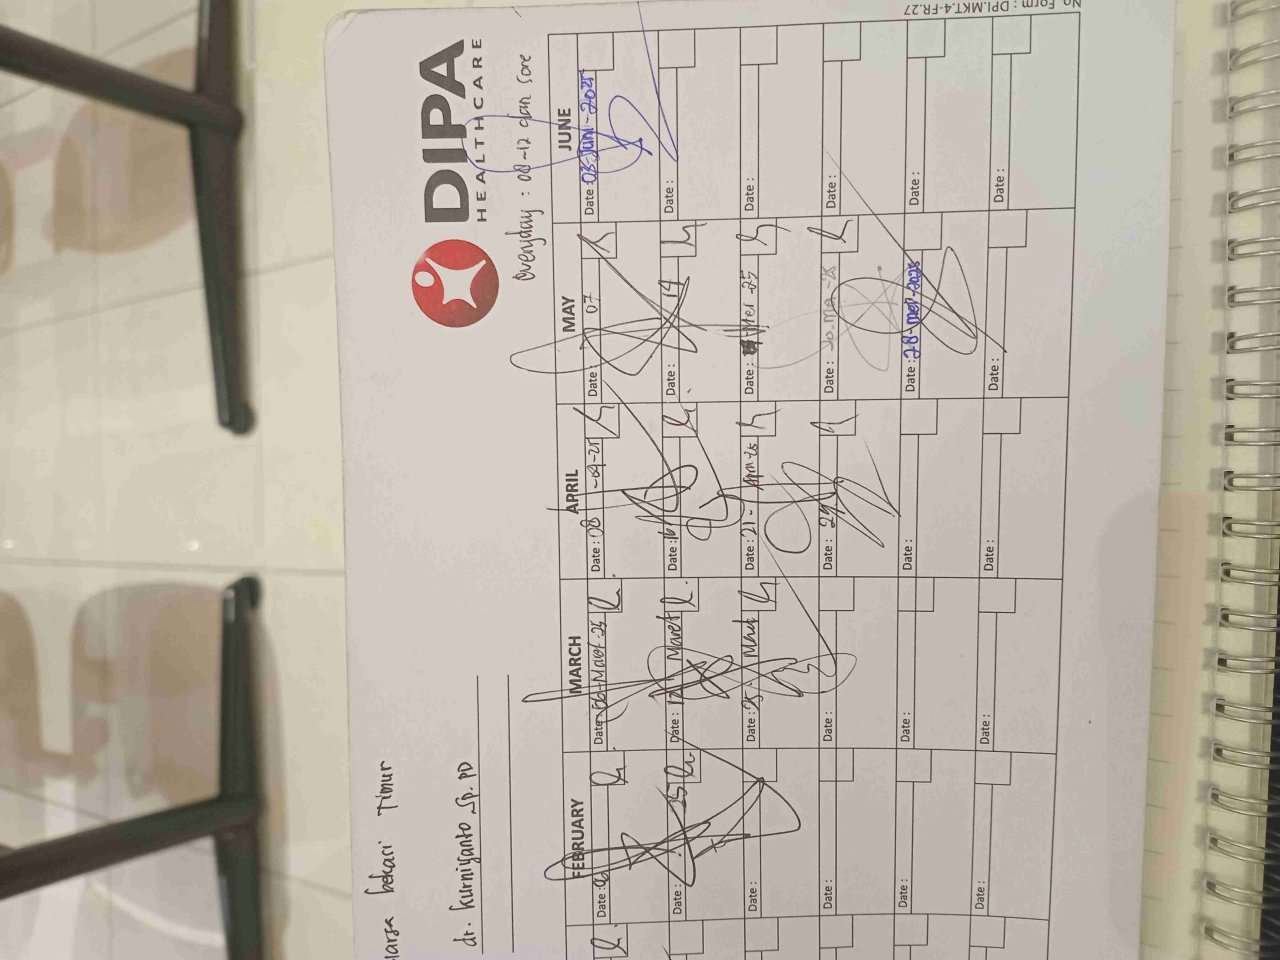 DIPA
HEALTHCARE
everyday : 08-12 dan Sore
bekasi Timur
dr. Kurniyanto Sp. PD
FEBRUARY
MARCH
APRIL
MAY
JUNE
Date : 06
Date : 06-Maret-25
Date : 08-04-25
Date : 07
Date : 03-Juni-2025
Date : 25
Date : 12 Maret
Date : 16
Date : 14
Date :
Date :
Date : 25 Maret
Date : 21- Apri-25
Date : Mei -25
Date :
Date :
Date :
Date : 29
Date : 20.Mei-25
Date :
Date :
Date :
Date :
Date : 28-Mei-2025
Date :
Date :
Date :
Date :
Date :
Date :
No. Form : DPI.MKT.4-FR.27